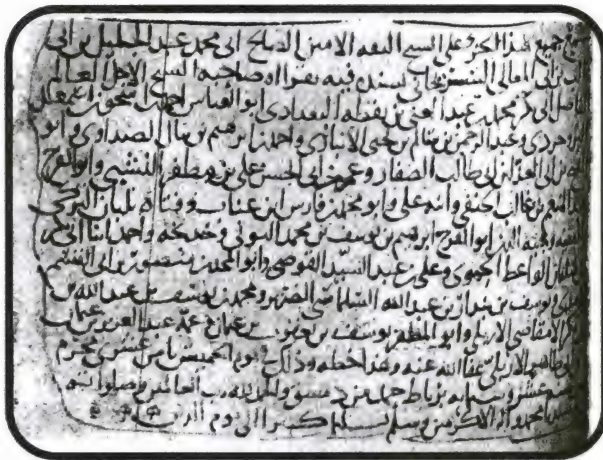 سمع جميع هذا الجزء على الشيخ الثقه الامين الصالح ابي محمد عبد الجليل بن ابي
بن ابي المعالي بسنده فيه بقراءة صاحبه الشيخ الاجل العالم
الفاضل ابي بكر محمد بن عبد الغني بن نقطه البغدادي ابو العباس احمد بن
وعبد الرحمن بن غانم بن يحيى الانباري واحمد بن ابرهيم بن غانم الصيداوي وابو
بن ابي العز بن ابي طالب الصفار وعمر بن ابي الحسن علي بن مظفر النشبي وابو الفرج
عبد المنعم بن غالب الحنفي وابنه علي وابو محمد فارس ابن عناب وفتاه بلبان التركي
الفقيه ابو الفرج ابرهيم بن يوسف بن محمد البوني وخديجه واحمد ابنا ابي بكر
الواعظ الحموي وعلي بن عبد السيد القوصي وابو المجد بن منصور بن ابي القسم
ويوسف بن بندار بن عبد الله السلماسي الصهر ومحمد بن يوسف بن عبد الله بن
الاربلي وابو المظفر يوسف بن يعقوب بن عثمن وعمه عبد العزيز بن عثمان
بن ابي طاهر الاربلي عفا الله عنه وهذا خطه وذلك يوم الخميس ثامن عشر من محرم
سنة عشر وستمايه برباط من دمشق والحمد لله رب العالمين وصلواته
محمد واله الاكرمين وسلم تسليما كثيرا الى يوم الدين